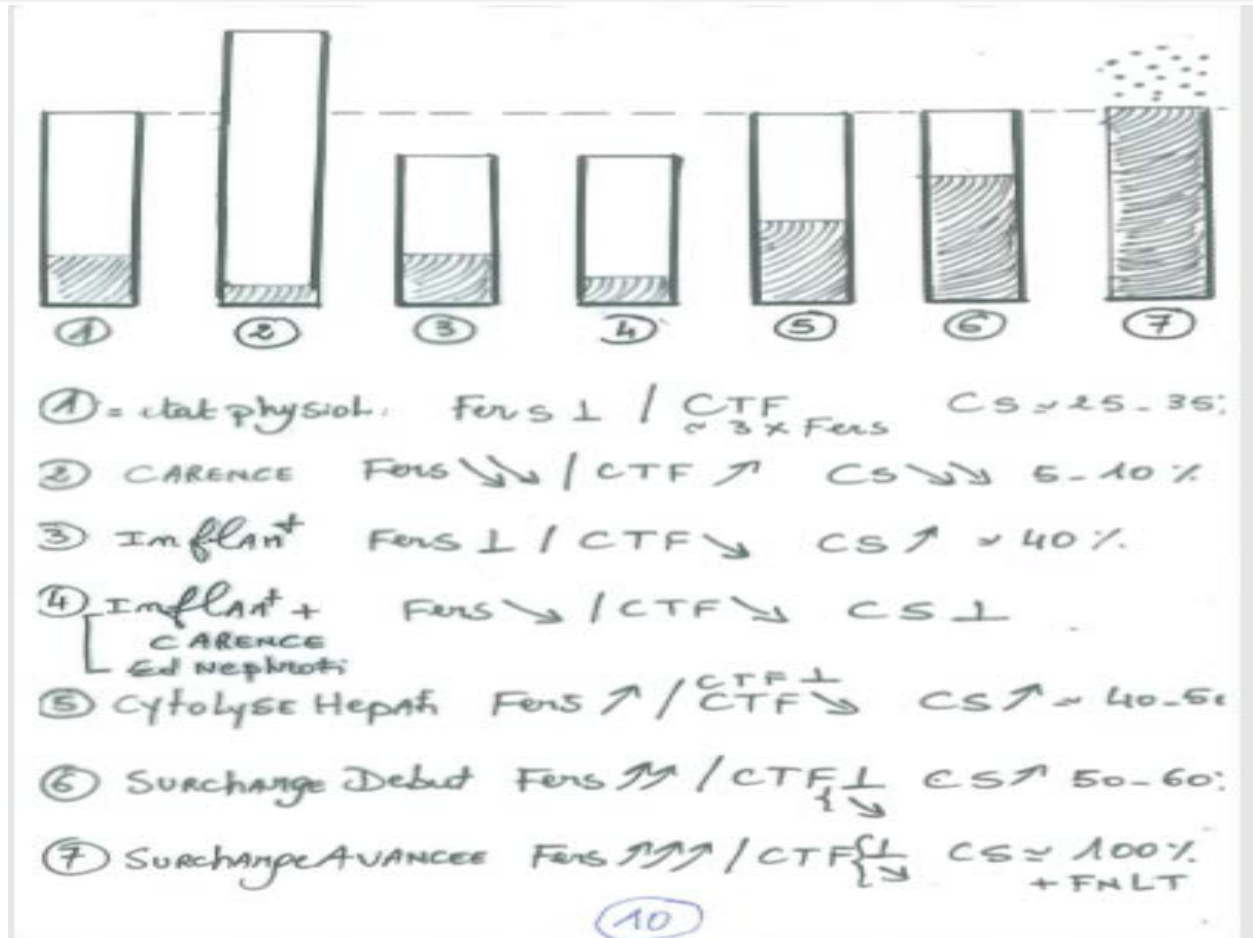 ① ② ③ ④ ⑤ ⑥ ⑦
① = etat physiol. Fer s ⊥ / CTF CS ≃ 25-35%
~ 3 x Fers
② CARENCE Fers ↘↘ / CTF ↗ CS ↘↘ 5-10%
③ Inflam^t Fers ⊥ / CTF ↘ CS ↗ ≃ 40%.
④ Inflam^t + Fers ↘ / CTF ↘ CS ⊥
CARENCE
Sd Nephroti
CTF ⊥
⑤ Cytolyse Hepat Fers ↗ / CTF ↘ CS ↗ ~ 40-5
⑥ Surcharge Debut Fers ↗↗ / CTF { ⊥ ↘ CS ↗ 50-60:
⑦ Surcharge AVANCEE Fers ↗↗↗ / CTF { ⊥ ↘ CS ≃ 100%
+ FNLT
10